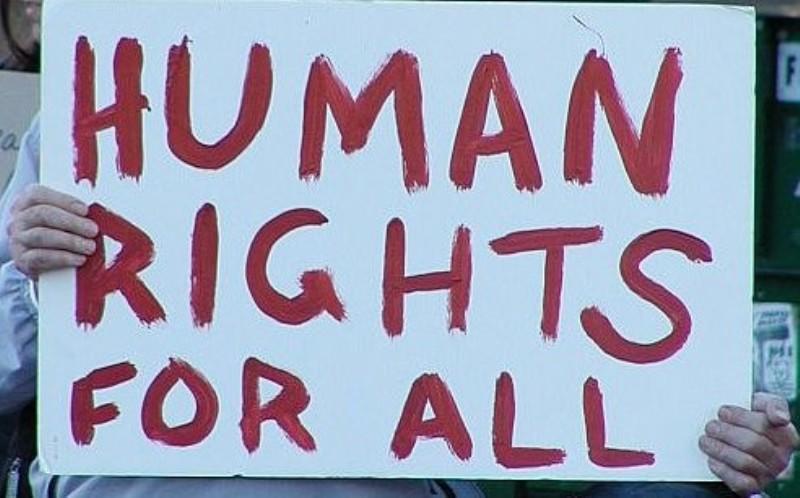 HUMAN
RIGHTS
FOR ALL